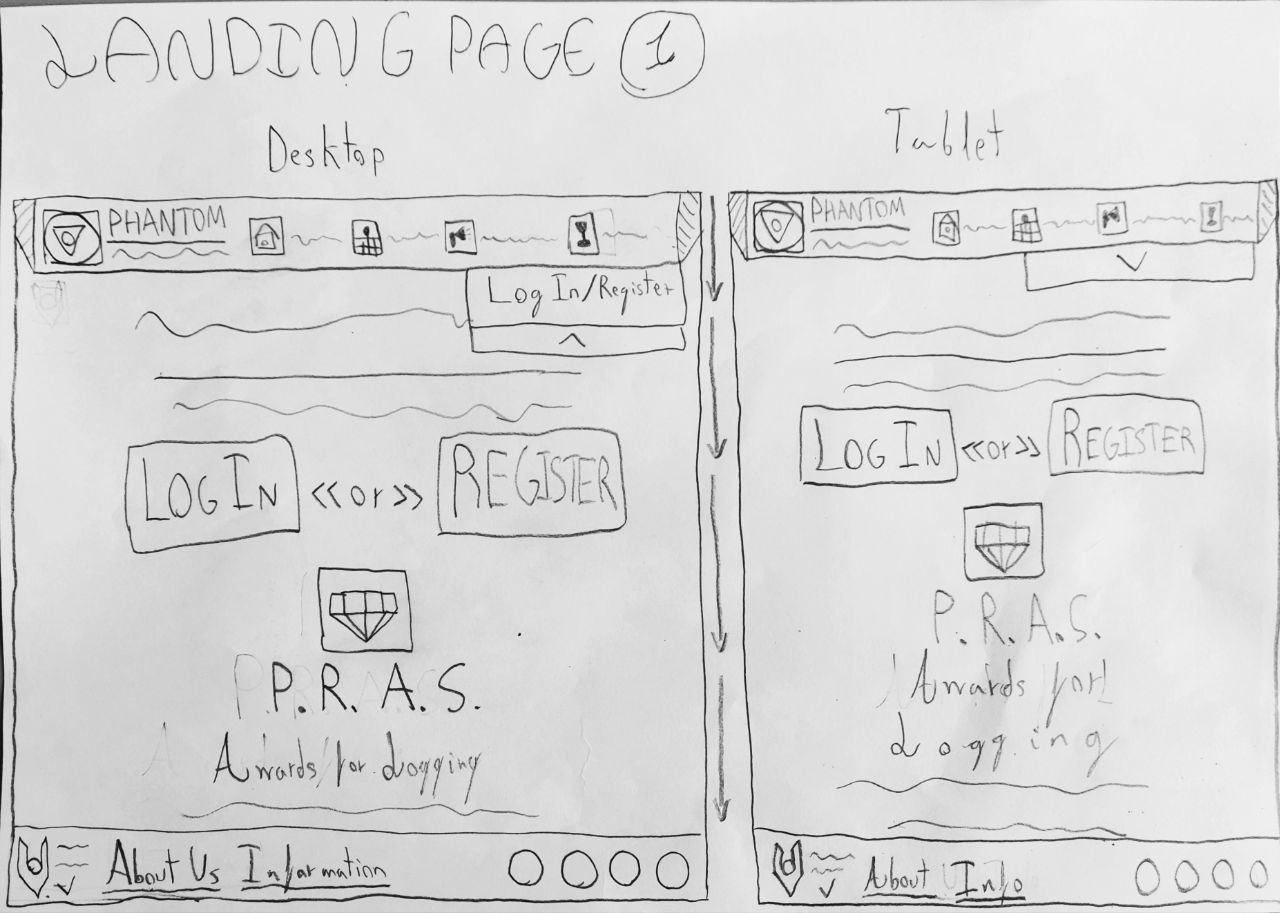 LANDING PAGE 1
Desktop
PHANTOM
Log In/Register
LOG IN <<or>> REGISTER
P.R.A.S.
Awards for Logging
About Us Information
Tablet
PHANTOM
LOG IN <<or>> REGISTER
P.R.A.S.
Awards for
Logging
About Info